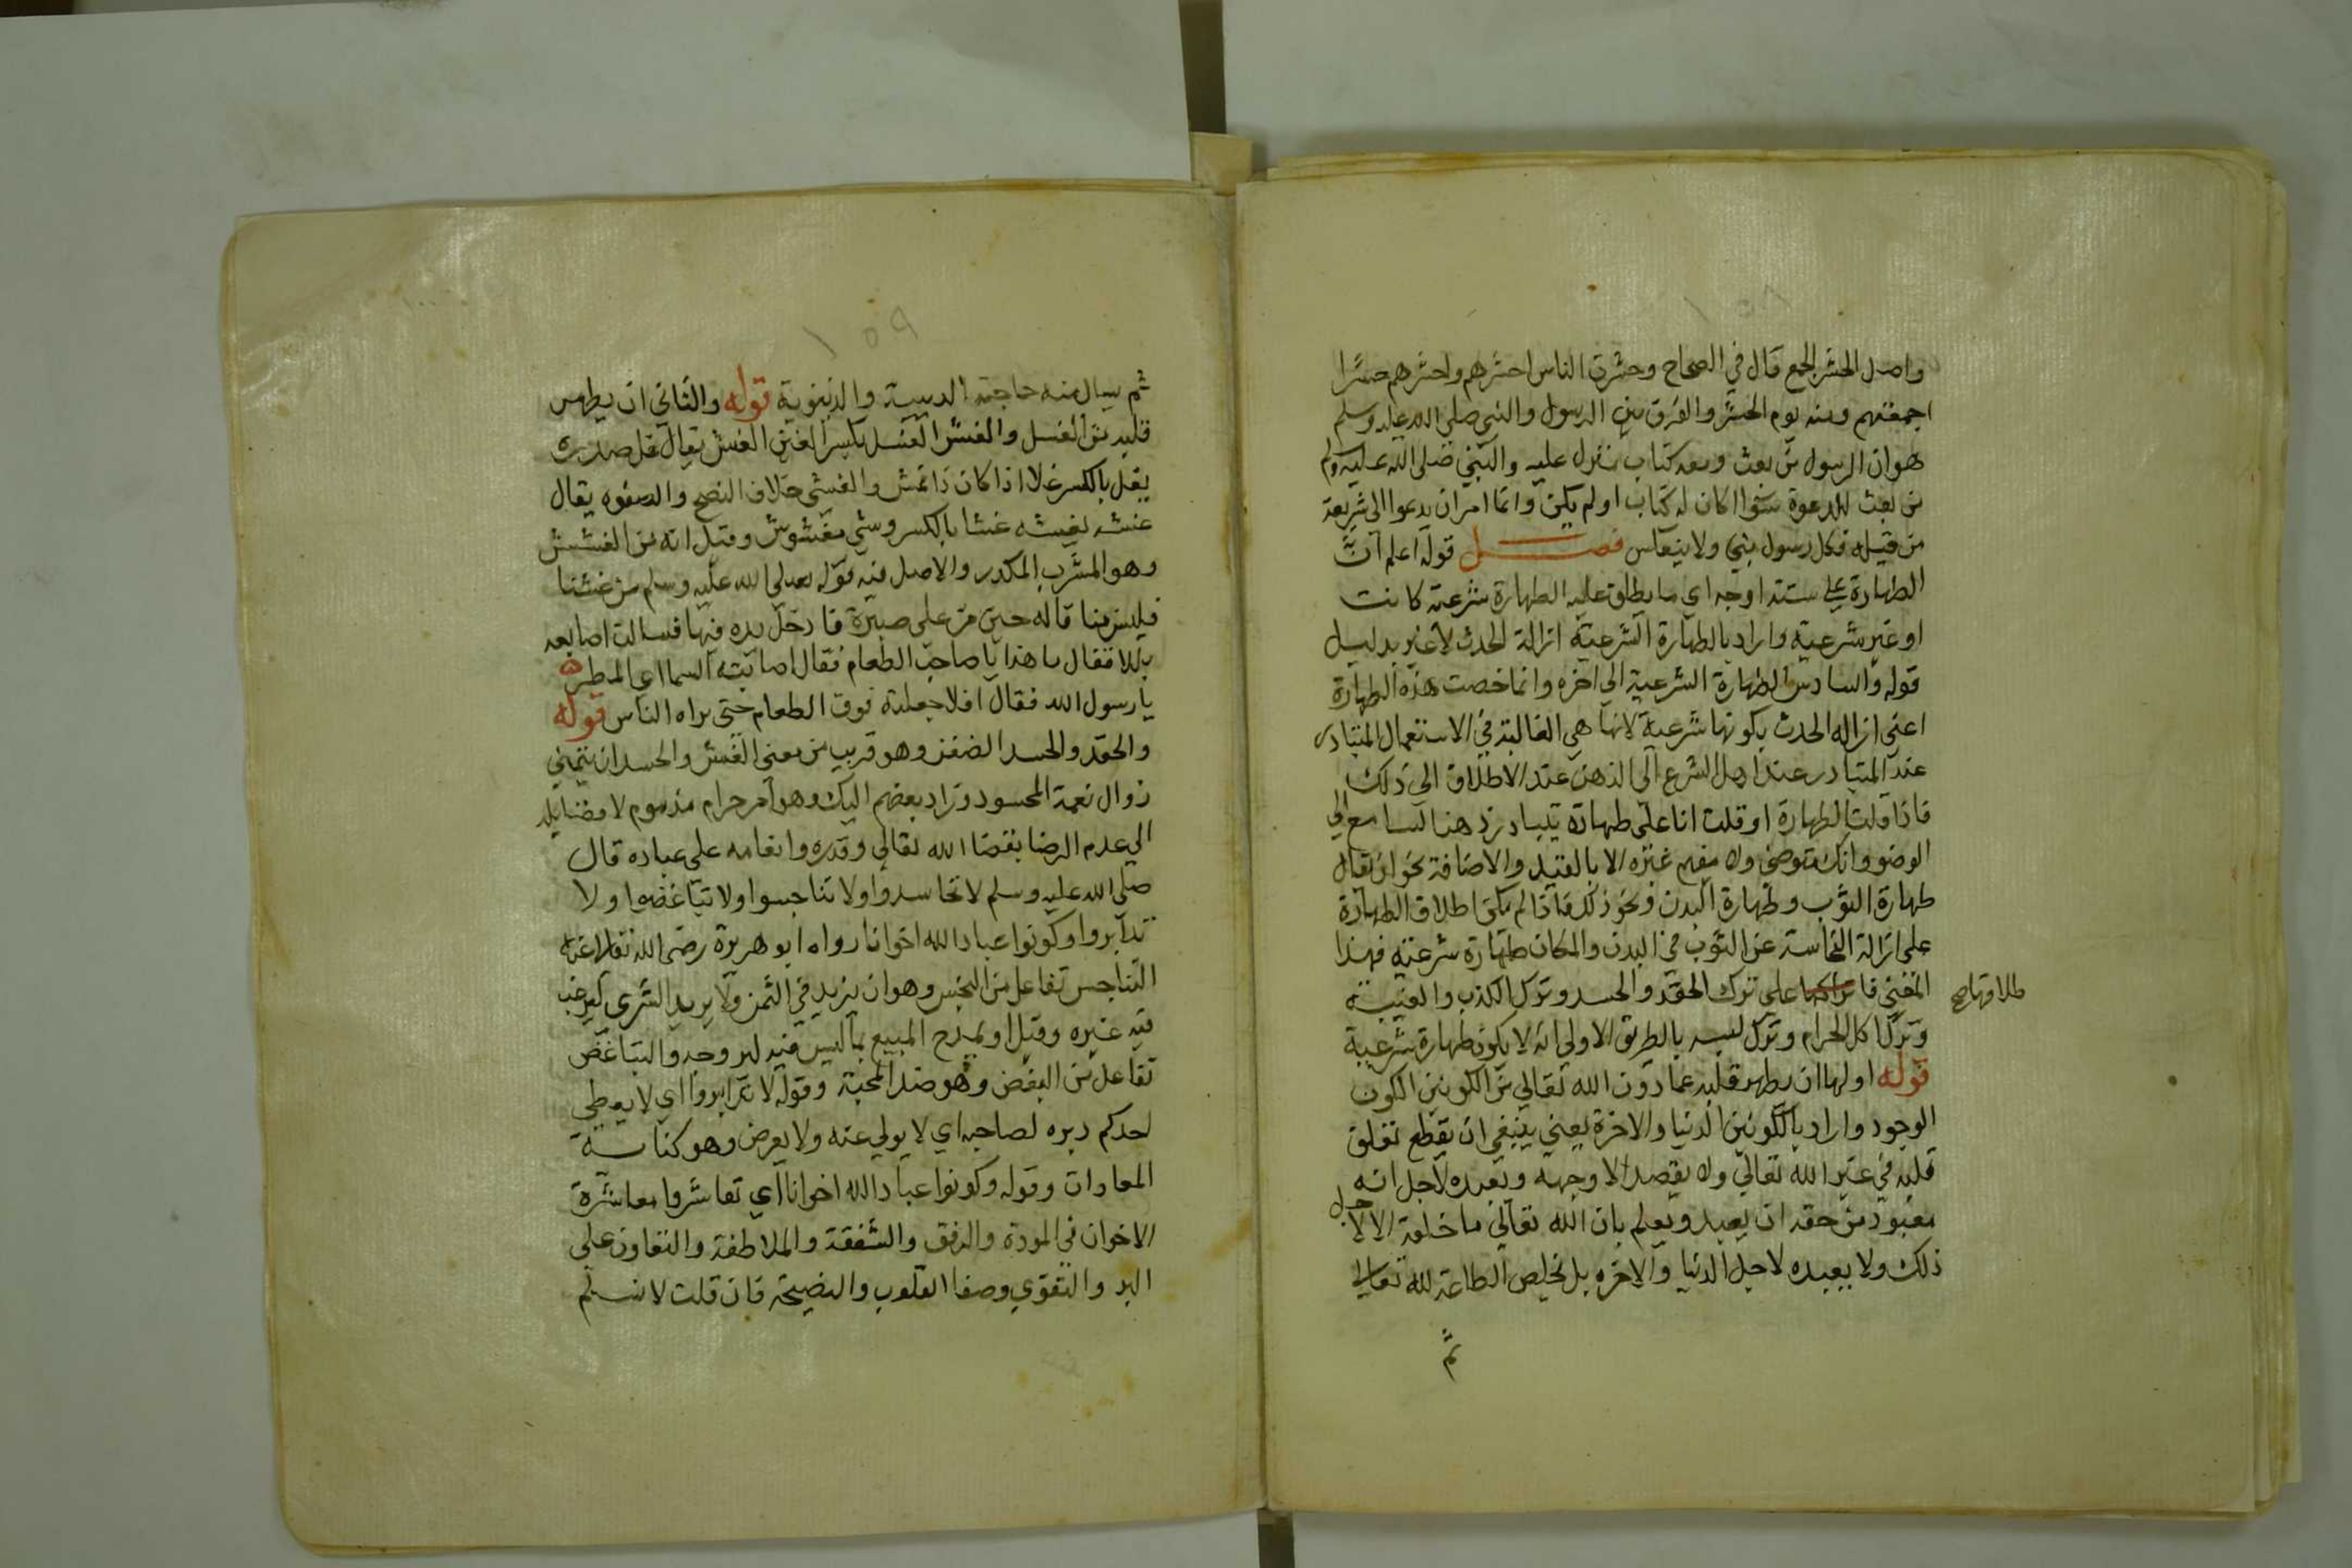 واصل الحشر الجمع قال في الصحاح وحشرت الناس احشرهم واحشرهم حشرا
اجمعتهم ومنه يوم الحشر والفرق بين الرسول والنبي صلى الله عليه وسلم
هو ان الرسول من بعث ومعه كتاب منزل عليه والنبي صلى الله عليه ولم
من بعث للدعوة سوا كان له كتاب او لم يكن وانما امر ان يدعوا الى شريعة
من قبله فكل رسول نبي ولا ينعكس فصل قوله اعلم ان
الطهارة على ستة اوجه اي ما يطلق عليه الطهارة شرعية كانت
او غير شرعية واراد بالطهارة الشرعية ازالة الحدث لا غير بدليل
قوله والسادس الطهارة الشرعية الى اخره وانما خصت هذه الطهارة
اعني ازاله الحدث بكونها شرعية لانها هي الغالبة في الاستعمال المتبادر
عند المتبادر عند اهل الشرع الى الذهن عند الاطلاق الى ذلك
فاذا قلت الطهارة او قلت انا على طهارة يتبادر ذهنا لسامع الي
الوضو وانك متوضئ ولا يفهم غيره الا بالقيد والاضافة نحو ان تقال
طهارة الثوب وطهارة البدن ونحو ذلك فاذا لم يكن اطلاق الطهارة
على ازالة النجاسة عن الثوب في البدن والمكان طهارة شرعية فهذا
المعني فا على ترك الحقد والحسد وترك الكذب والغيبة
طلاقها صح
وترك اكل الحرام وترك لبسه بالطريق الاولي انه لا يكون طهارة شرعية
قوله اولها ان يطهر قلبه عما دون الله تعالي من الكونين الكون
الوجود واراد بالكونين الدنيا والاخرة يعني ينبغي ان يقطع تعلق
قلبه في غير الله تعالي ولا يقصد الا وجهه ويعبده لاجل انه
معبود من حقه ان يعبد ويعلم بان الله تعالي ما خلقه الا لاجل
ذلك ولا يعبده لاجل الدنيا والاخره بل نخلص الطاعة لله تعالي
ثم
١٥٩
ثم يسال منه حاجته الدينية والدنيوية قوله والثاني ان يطهر
قلبه من الغسل والغش الغسل بكسر الغين الغش يقال غل صدره
يغل بالكسر غلا اذا كان ذا غش والغش خلاف النصح والصفوه يقال
غشه يغشه غشا بالكسر وشي مغشوش وقيل انه من الغشش
وهو المشرب المكدر والاصل فيه قوله صلى الله عليه وسلم من غشنا
فليس منا قاله حين مر على صبرة فادخل يده فيها فسالت اصابعه
بللا فقال ما هذا يا صاحب الطعام فقال اصابته السما اي المطر
يا رسول الله فقال افلا جعلته فوق الطعام حتى يراه الناس قوله
والحقد والحسد الضغن وهو قريب من معنى الغش والحسد ان يتمني
زوال نعمة المحسود وزاد بعضهم اليك وهو امر حرام مذموم لافضائه
الي عدم الرضا بقضا الله تعالى وقدره وانعامه على عباده قال
صلى الله عليه وسلم لا تحاسدوا ولا تناجسوا ولا تباغضوا ولا
تدابروا وكونوا عباد الله اخوانا رواه ابو هريرة رضى الله تعالى عنه
التناجس تفاعل من النجس وهو ان يزيد في الثمن ولا يريد الشرى ليرغب
فيه غيره وقيل او يمدح المبيع بما ليس فيه ليروجه والتباغض
تفاعل من البغض وهو ضد المحبة وقوله لا تدابروا اي لا يعطي
احدكم دبره لصاحبه اي لا يولي عنه ولا يعرض وهو كناسة
المعادات وقوله وكونوا عباد الله اخوانا اي تعاشروا معاشرة
الاخوان في المودة والرفق والشفقة والملاطفة والتعاون على
البر والتقوي وصفا القلوب والنصيحة فان قلت لا نسلم